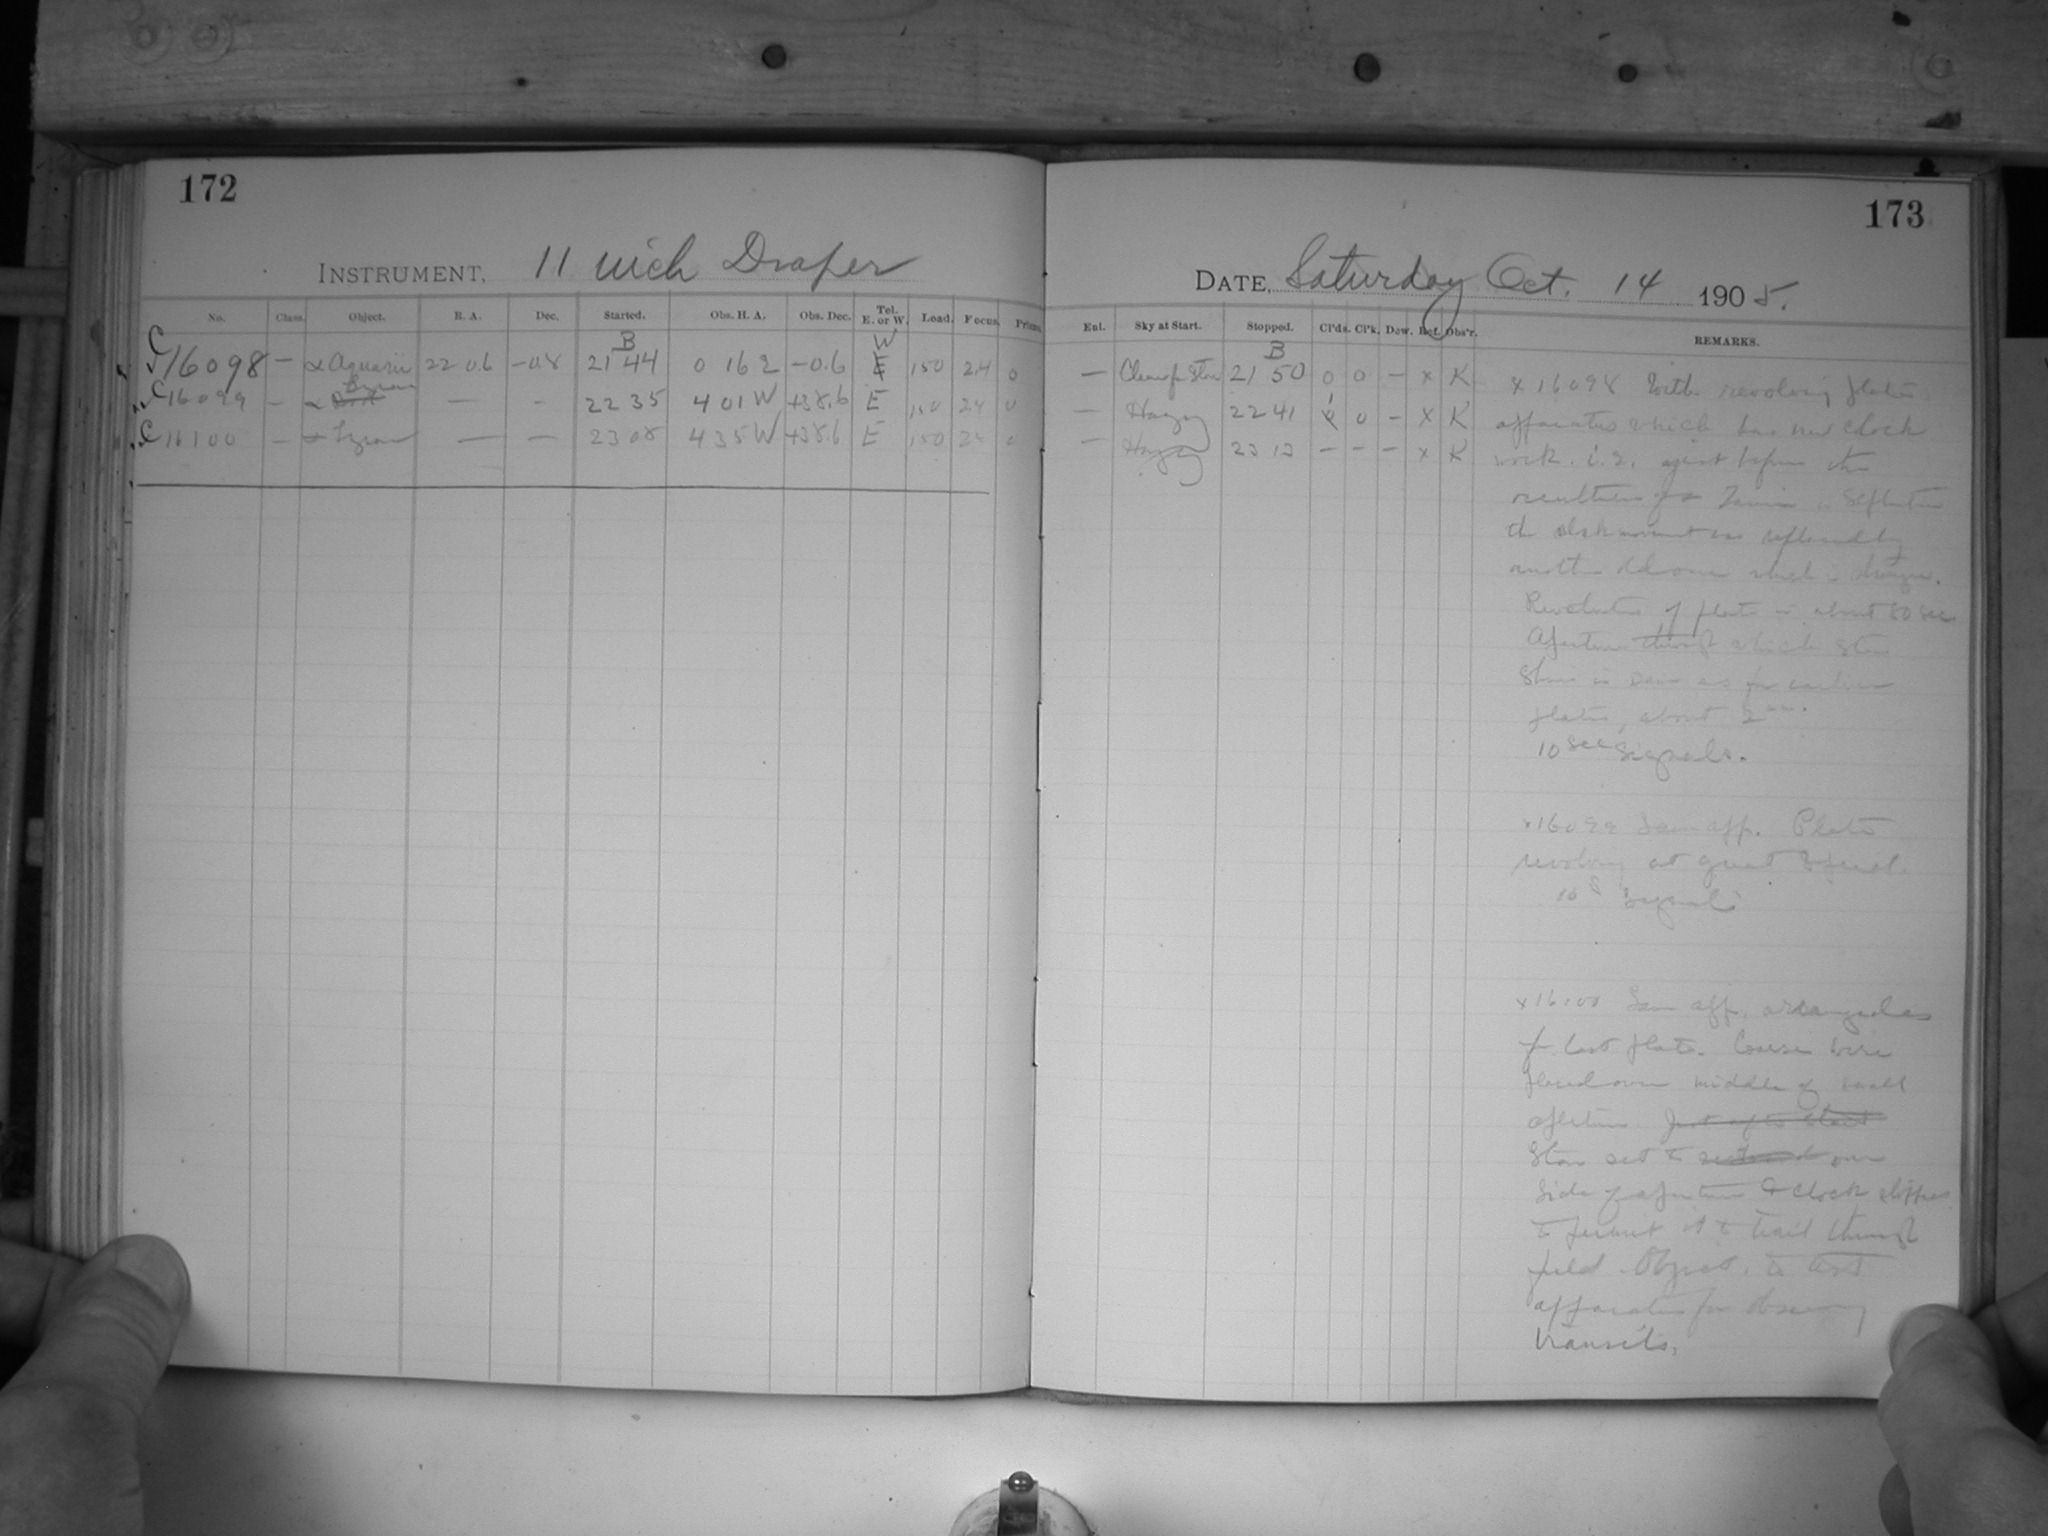 172
INSTRUMENT, 11 inch Draper
No. Class. Object. R. A. Dec. Started. Obs. H. A. Obs. Dec. Tel. E. or W. Load. Focus. Prisms
B W
C 16098 — α Aquarii 22 0.6 -0.8 21 44 0 16 2 -0.6 E 150 24 0
Lyrae
C 16099 — α — - 22 35 4 01 W +38.6 E 150 24 0
C 16100 — α Lyrae — — 23 08 4 35 W +38.6 E 150 24 0
173
DATE, Saturday Oct. 14 1905.
Enl. Sky at Start. Stopped. Cl'ds. Cl'k. Dew. Def. Obs'r. REMARKS.
B
— Clear 21 50 0 0 — x K
— Hazy 22 41 1 0 — x K
— Hazy 23 13 — — — x K
x 16098 With revolving plate
apparatus which has new clock
work. i.e. just before the
the clock movement was replaced by
another old one which is stronger.
Revolution of plate in about 80 sec
Aperture through which star
shines is same as for earlier
plates, about 2 mm.
10 sec signals.
x 16099 Same app. Plate
revolving at great speed.
10 s signals
x 16100 Same app. arranged as
for last plate. Coarse wire
placed over middle of small
aperture. Just after start
Star set to one
side of aperture & clock stopped
to permit it to trail through
field. Object, to test
apparatus for observing
transits.